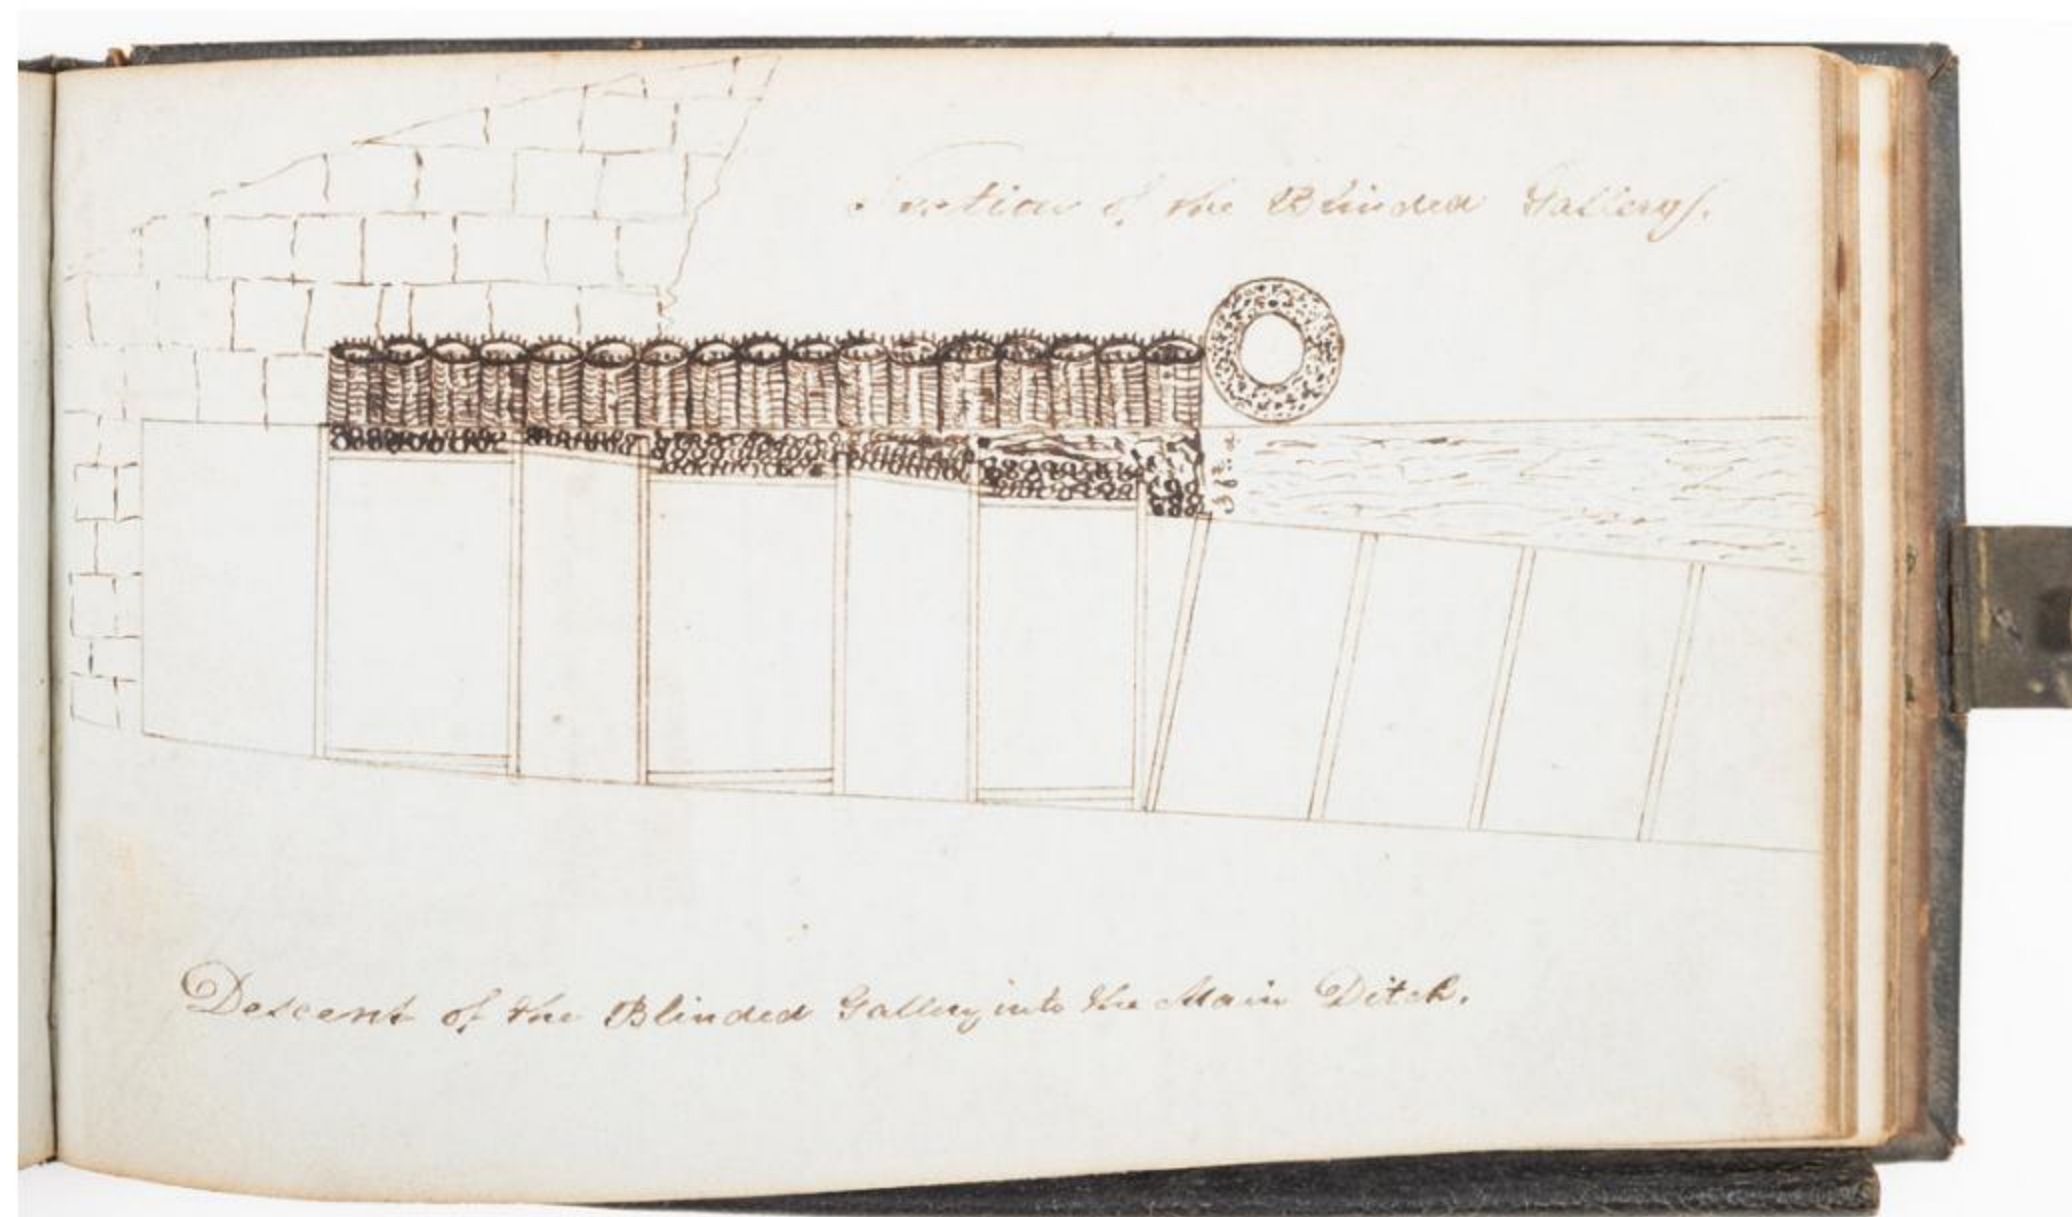 Section of the Blinded Gallery.
Descent of the Blinded Gallery into the Main Ditch.